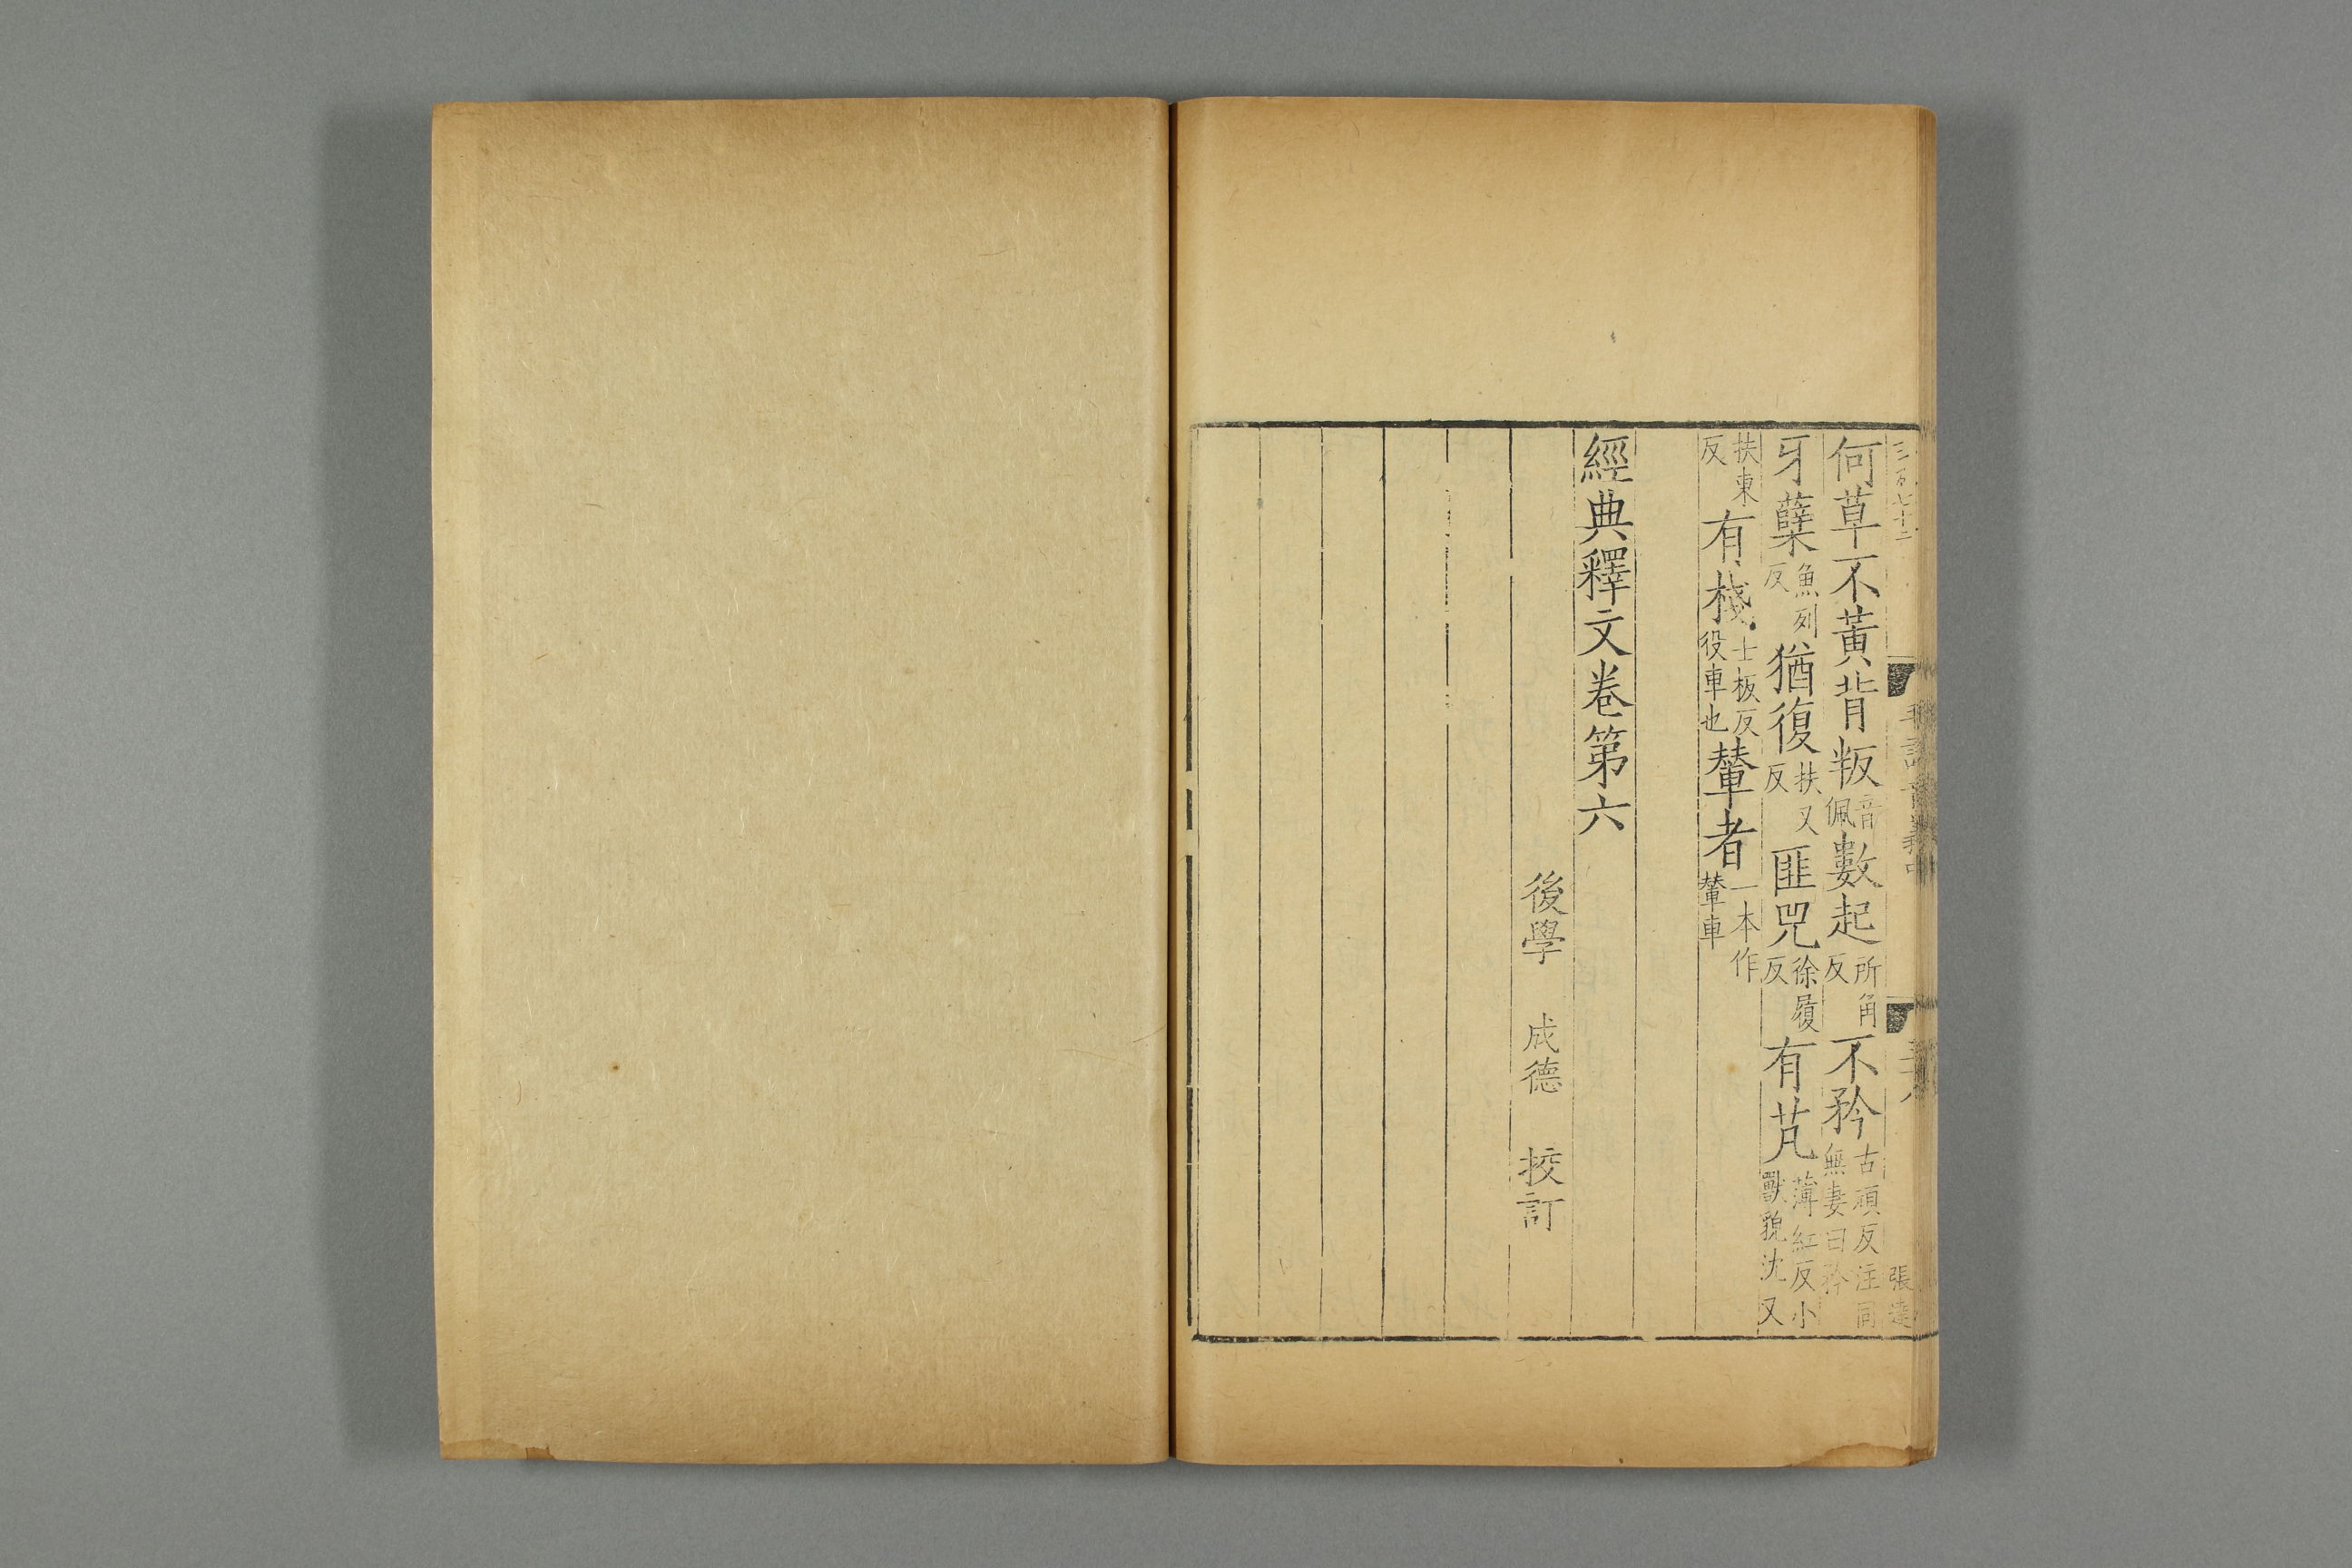 三百七十二
毛詩音義中
三十八
張達
何草不黃背叛音佩數起所角反不矜古頑反注同無妻曰矜
牙蘖魚列反猶復扶又反匪兕徐履反有芃薄紅反小獸貌沈又
扶東反有棧士板反役車也輦者一本作輦車
經典釋文卷第六
後學 成德 挍訂